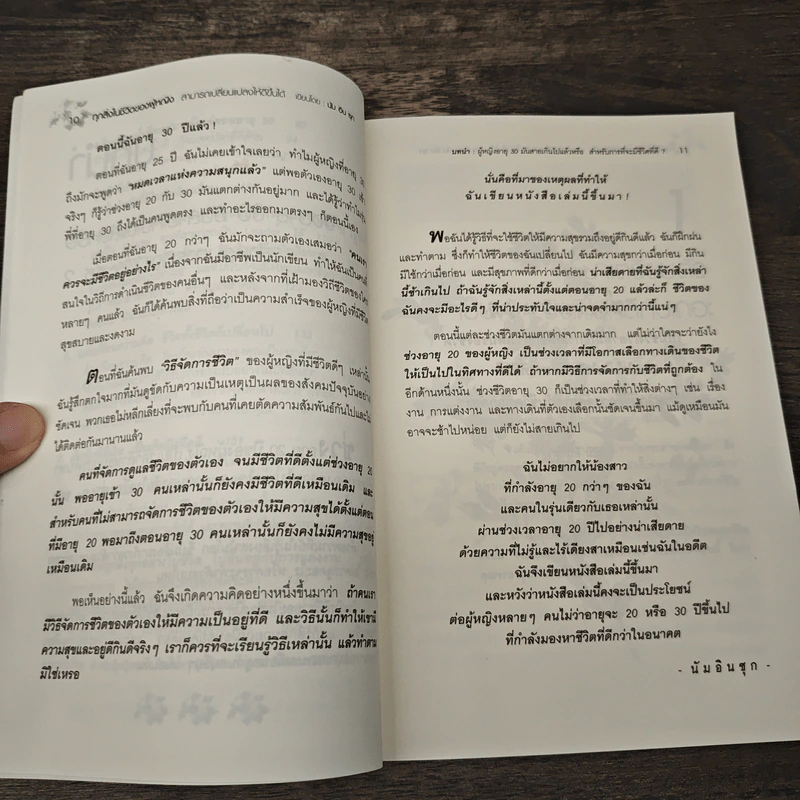 10 ทุกสิ่งในชีวิตของผู้หญิง สามารถเปลี่ยนแปลงให้ดีขึ้นได้ เขียนโดย : นัม อิน ซุก
ตอนนี้ฉันอายุ 30 ปีแล้ว !
ตอนที่ฉันอายุ 25 ปี ฉันไม่เคยเข้าใจเลยว่า ทำไมผู้หญิงที่อายุ 30
ถึงมักจะพูดว่า "หมดเวลาแห่งความสนุกแล้ว" แต่พอตัวเองอายุ 30
จริงๆ ก็รู้ว่าช่วงอายุ 20 กับ 30 มันแตกต่างกันอยู่มาก และได้รู้ว่าทำไม
พี่ที่อายุ 30 ถึงได้เป็นคนพูดตรง และทำอะไรออกมาตรงๆ ก็ตอนนี้เอง
เมื่อตอนที่ฉันอายุ 20 กว่าๆ ฉันมักจะถามตัวเองเสมอว่า "คนเรา
ควรจะมีชีวิตอยู่อย่างไร" เนื่องจากฉันมีอาชีพเป็นนักเขียน ทำให้ฉันเป็นคนที่
สนใจในวิธีการดำเนินชีวิตของคนอื่นๆ และหลังจากที่เฝ้ามองวิถีชีวิตของใคร
หลายๆ คนแล้ว ฉันก็ได้ค้นพบสิ่งที่ถือว่าเป็นความสำเร็จของผู้หญิงที่มีชีวิต
สุขสบายและงดงาม
ตอนที่ฉันค้นพบ "วิธีจัดการชีวิต" ของผู้หญิงที่มีชีวิตดีๆ เหล่านั้น
ฉันรู้สึกตกใจมากที่มันดูขัดกับความเป็นเหตุเป็นผลของสังคมปัจจุบันอย่าง
ชัดเจน พวกเธอไม่หลีกเลี่ยงที่จะพบกับคนที่เคยตัดความสัมพันธ์กันไปและไม่
ได้ติดต่อกันมานานแล้ว
คนที่จัดการดูแลชีวิตของตัวเอง จนมีชีวิตที่ดีตั้งแต่ช่วงอายุ 20
นั้น พออายุเข้า 30 คนเหล่านั้นก็ยังคงมีชีวิตที่ดีเหมือนเดิม และ
สำหรับคนที่ไม่สามารถจัดการชีวิตของตัวเองให้มีความสุขได้ตั้งแต่ตอน
ที่มีอายุ 20 พอมาถึงตอนอายุ 30 คนเหล่านั้นก็ยังคงไม่มีความสุขอยู่
เหมือนเดิม
พอเห็นอย่างนี้แล้ว ฉันจึงเกิดความคิดอย่างหนึ่งขึ้นมาว่า ถ้าคนเรา
มีวิธีจัดการชีวิตของตัวเองให้มีความเป็นอยู่ที่ดี และวิธีนั้นก็ทำให้เรามี
ความสุขและอยู่ดีกินดีจริงๆ เราก็ควรที่จะเรียนรู้วิธีเหล่านั้น แล้วทำตาม
มิใช่เหรอ
บทนำ : ผู้หญิงอายุ 30 มันสายเกินไปแล้วหรือ สำหรับการที่จะมีชีวิตที่ดี ? 11
นั่นคือที่มาของเหตุผลที่ทำให้
ฉันเขียนหนังสือเล่มนี้ขึ้นมา !
พอฉันได้รู้วิธีที่จะใช้ชีวิตให้มีความสุขรวมถึงอยู่ดีกินดีแล้ว ฉันก็ฝึกฝน
และทำตาม ซึ่งก็ทำให้ชีวิตของฉันเปลี่ยนไป ฉันมีความสุขกว่าเมื่อก่อน มีกิน
มีใช้กว่าเมื่อก่อน และมีสุขภาพที่ดีกว่าเมื่อก่อน น่าเสียดายที่ฉันรู้จักสิ่งเหล่า
นี้ช้าเกินไป ถ้าฉันรู้จักสิ่งเหล่านี้ตั้งแต่ตอนอายุ 20 แล้วล่ะก็ ชีวิตของ
ฉันคงจะมีอะไรดีๆ ที่น่าประทับใจและน่าจดจำมากกว่านี้แน่ๆ
ตอนนี้แต่ละช่วงชีวิตมันแตกต่างจากเดิมมาก แต่ไม่ว่าใครจะว่ายังไง
ช่วงอายุ 20 ของผู้หญิง เป็นช่วงเวลาที่มีโอกาสเลือกทางเดินของชีวิต
ให้เป็นไปในทิศทางที่ดีได้ ถ้าหากมีวิธีการจัดการกับชีวิตที่ถูกต้อง ใน
อีกด้านหนึ่งนั้น ช่วงชีวิตอายุ 30 ก็เป็นช่วงเวลาที่ทำให้สิ่งต่างๆ เช่น เรื่อง
งาน การแต่งงาน และทางเดินที่ตัวเองเลือกนั้นชัดเจนขึ้นมา แม้ดูเหมือนมัน
อาจจะช้าไปหน่อย แต่ก็ยังไม่สายเกินไป
ฉันไม่อยากให้น้องสาว
ที่กำลังอายุ 20 กว่าๆ ของฉัน
และคนในรุ่นเดียวกับเธอเหล่านั้น
ผ่านช่วงเวลาอายุ 20 ปีไปอย่างน่าเสียดาย
ด้วยความที่ไม่รู้และไร้เดียงสาเหมือนเช่นฉันในอดีต
ฉันจึงเขียนหนังสือเล่มนี้ขึ้นมา
และหวังว่าหนังสือเล่มนี้คงจะเป็นประโยชน์
ต่อผู้หญิงหลายๆ คนไม่ว่าอายุจะ 20 หรือ 30 ปีขึ้นไป
ที่กำลังมองหาชีวิตที่ดีกว่าในอนาคต
- นัมอินซุก -